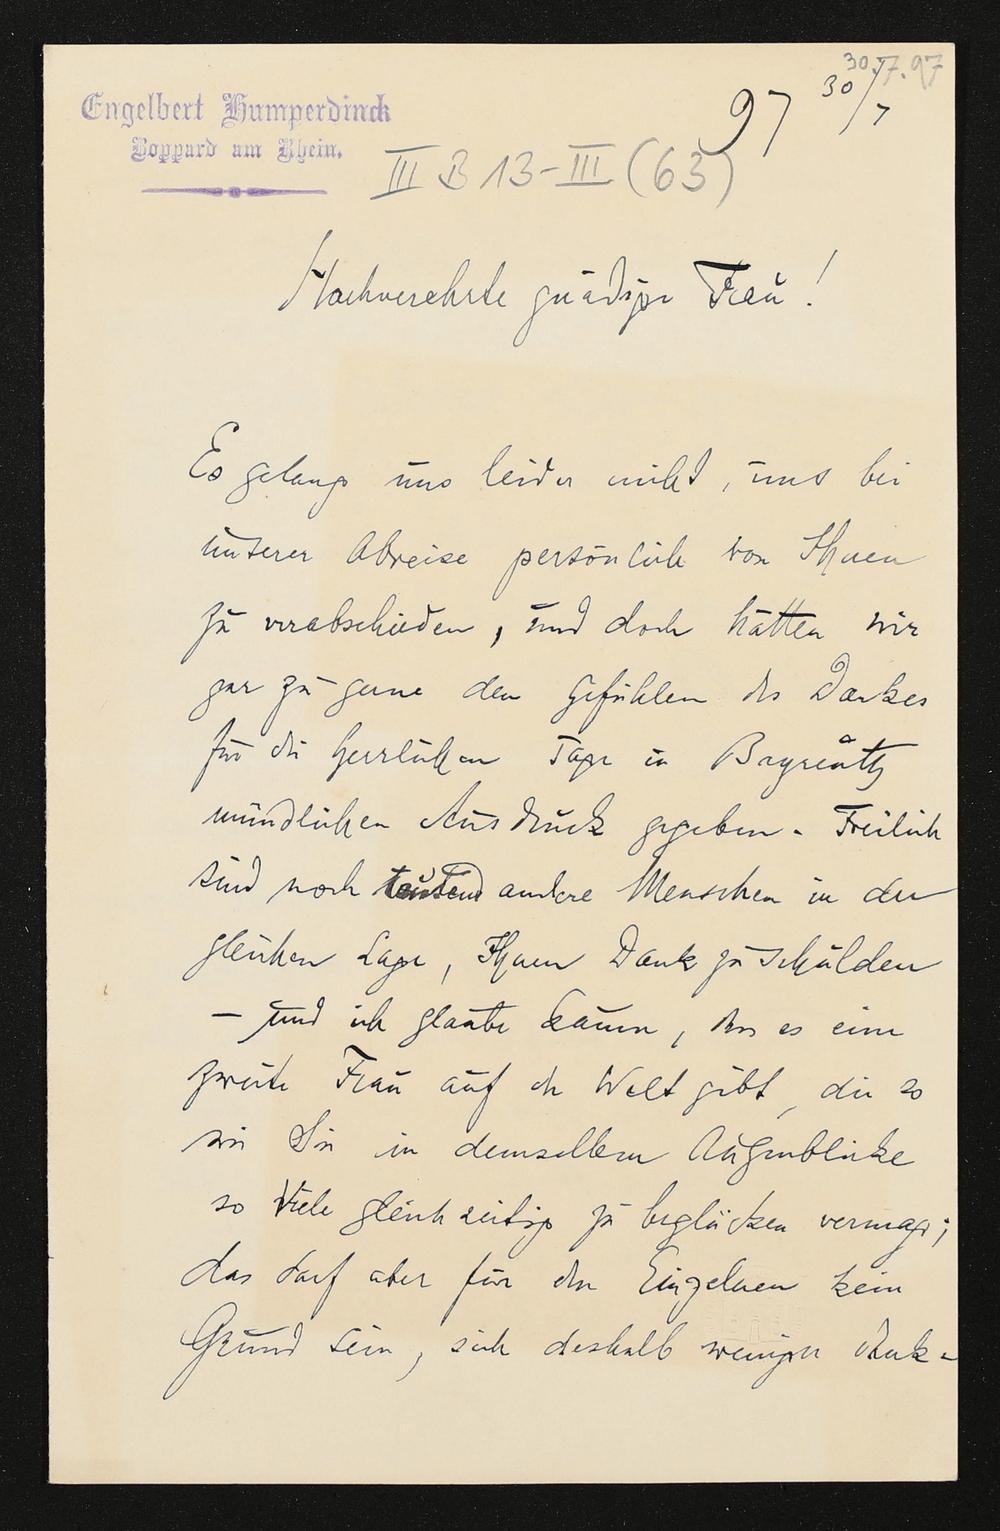 30.7.97
97 30/7
Engelbert Humperdinck
Boppard am Rhein.
III B 13-III (63)
Hochverehrte gnädige Frau!
Es gelang uns leider nicht, uns bei
unserer Abreise persönlich von Ihnen
zu verabschieden, und doch hätten wir
gar zu gerne den Gefühlen des Dankes
für die herrlichen Tage in Bayreuth
mündlichen Ausdruck gegeben. Freilich
sind noch tausend andere Menschen in der
gleichen Lage, Ihnen Dank zu schulden
– und ich glaube kaum, dass es eine
zweite Frau auf der Welt gibt, die so
wie Sie in demselben Augenblicke
so Viele gleichzeitig zu beglücken vermag;
das darf aber für den Einzelnen kein
Grund sein, sich deshalb weniger dank-